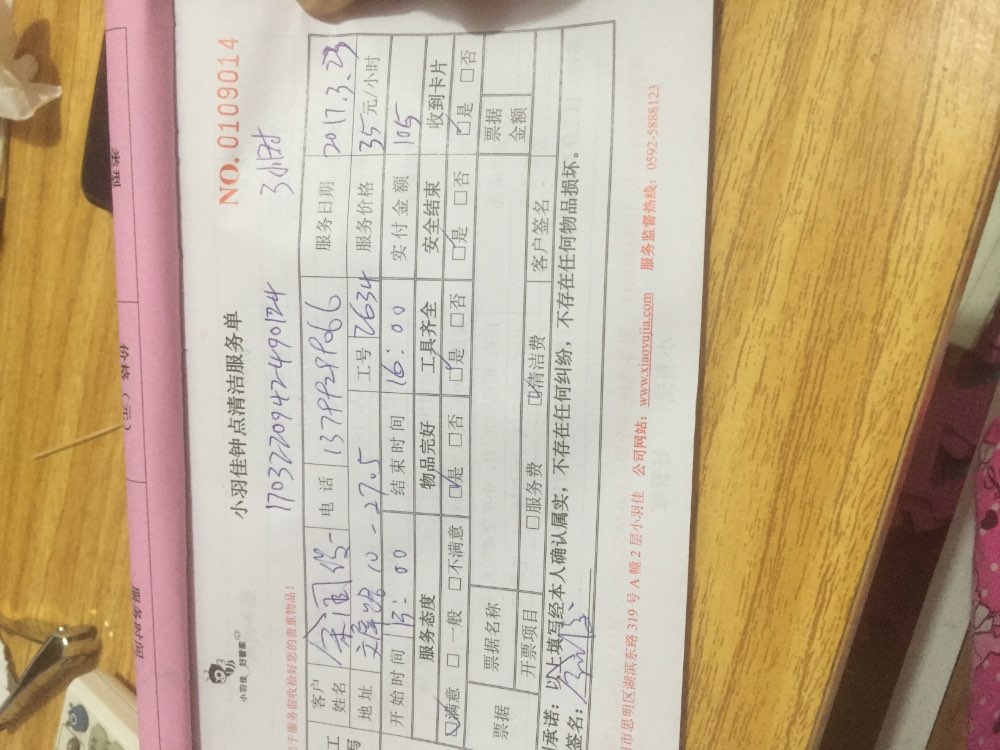 小羽佳 好管家
NO. 0109014
小羽佳钟点清洁服务单
17032209424490124 3小时
于服务前收拾好您的贵重物品！
客户姓名 电话 服务日期 2017.3.23
地址 10-2705 工号 2634 服务价格 35元/小时
开始时间 13:00 结束时间 16:00 实付金额 105
服务态度 物品完好 工具齐全 安全结束 收到卡片
☑满意 □一般 □不满意 ☑是 □否 ☑是 □否 ☑是 □否 ☑是 □否
票据 票据名称 票据金额
开票项目 □服务费 ☑清洁费 客户签名
承诺：以上填写经本人确认属实，不存在任何纠纷，不存在任何物品损坏。
签名：
市思明区湖滨东路 319 号 A 幢 2 层小羽佳 公司网站：www.xiaoyujia.com 服务监督热线：0592-5888123